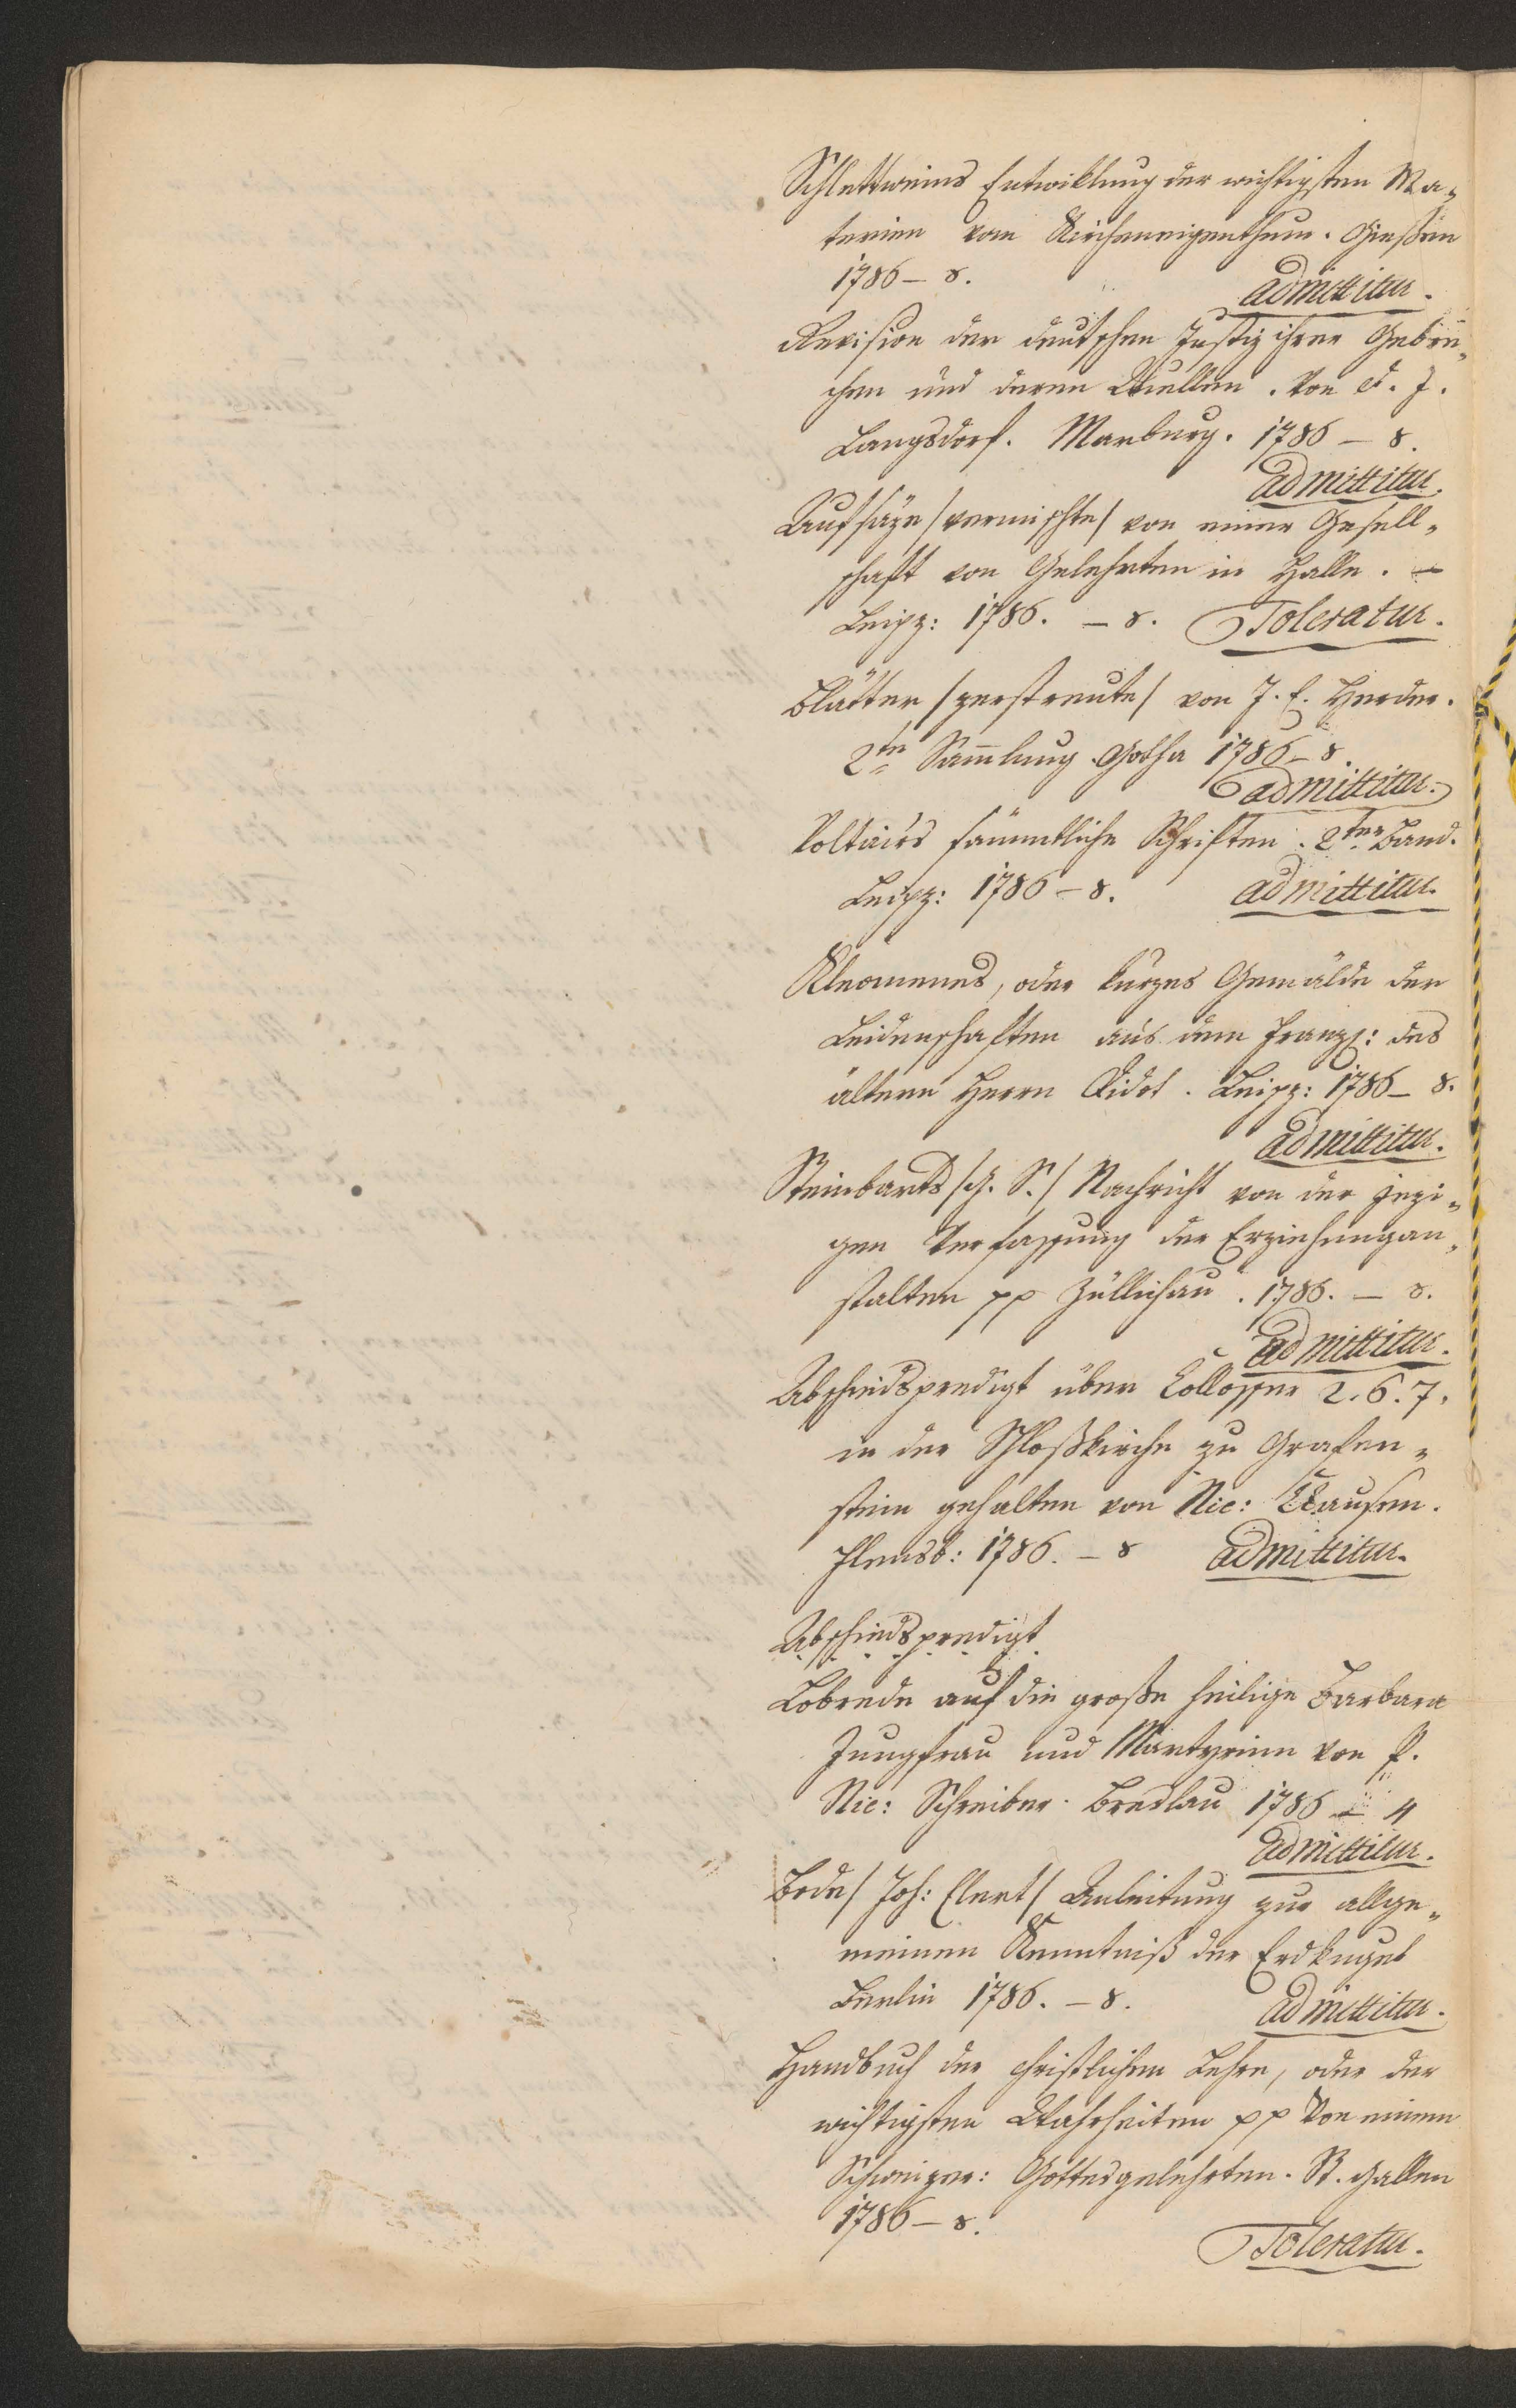 Schlettweins Entwiklung der wichtigsten Ma„
terien vom Kircheneigenthum. Gießen
1786 – 8.
admittitur.
Revision der deutschen Justiz ihrer Gebre„
chen und deren Quellen. Von d. J.
Langsdorf. Marburg. 1786 – 8.
admittitur.
Aufsäze /vermischte/ von einer Gesell„
schaft von Gelehrten in Halle. –
Leipz: 1786. – 8. Toleratur.
Blätter /zerstreute/ von J. G. Herder.
2te Sammlung. Gotha 1786 – 8.
admittitur.
Voltairs sämmtliche Schriften. 2ter Band.
Leipz: 1786 – 8. admittitur.
Kleomenes, oder kurzes Gemälde der
Leidenschaften aus dem Franz: des
ältern Herrn Didot. Leipz: 1786 – 8.
admittitur.
Steinbarts /G. S./ Nachricht von der jezi„
gen Verfassung der Erziehungan„
stalten pp Züllichau. 1786. – 8.
admittitur.
Abschiedspredigt über Collosser 2. 6. 7.
in der Schloßkirche zu Grafen„
stein gehalten von Nic: Clausen.
Flensb: 1786. – 8 admittitur.
Abschiedspredigt
Lobrede auf die große heilige Barbara
Jungfrau und Martyrinn von P.
Nic: Schreiber. Breslau 1786 – 4
admittitur.
Bode /Joh: Elert/ Anleitung zur allge„
meinen Kenntniß der Erdkugel
Berlin 1786. – 8.
admittitur.
Handbuch der christlichen Lehre, oder der
wichtigsten Wahrheiten pp Von einem
Schweizer: Gottesgelehrten. St. Gallen
1786 – 8.
Toleratur.